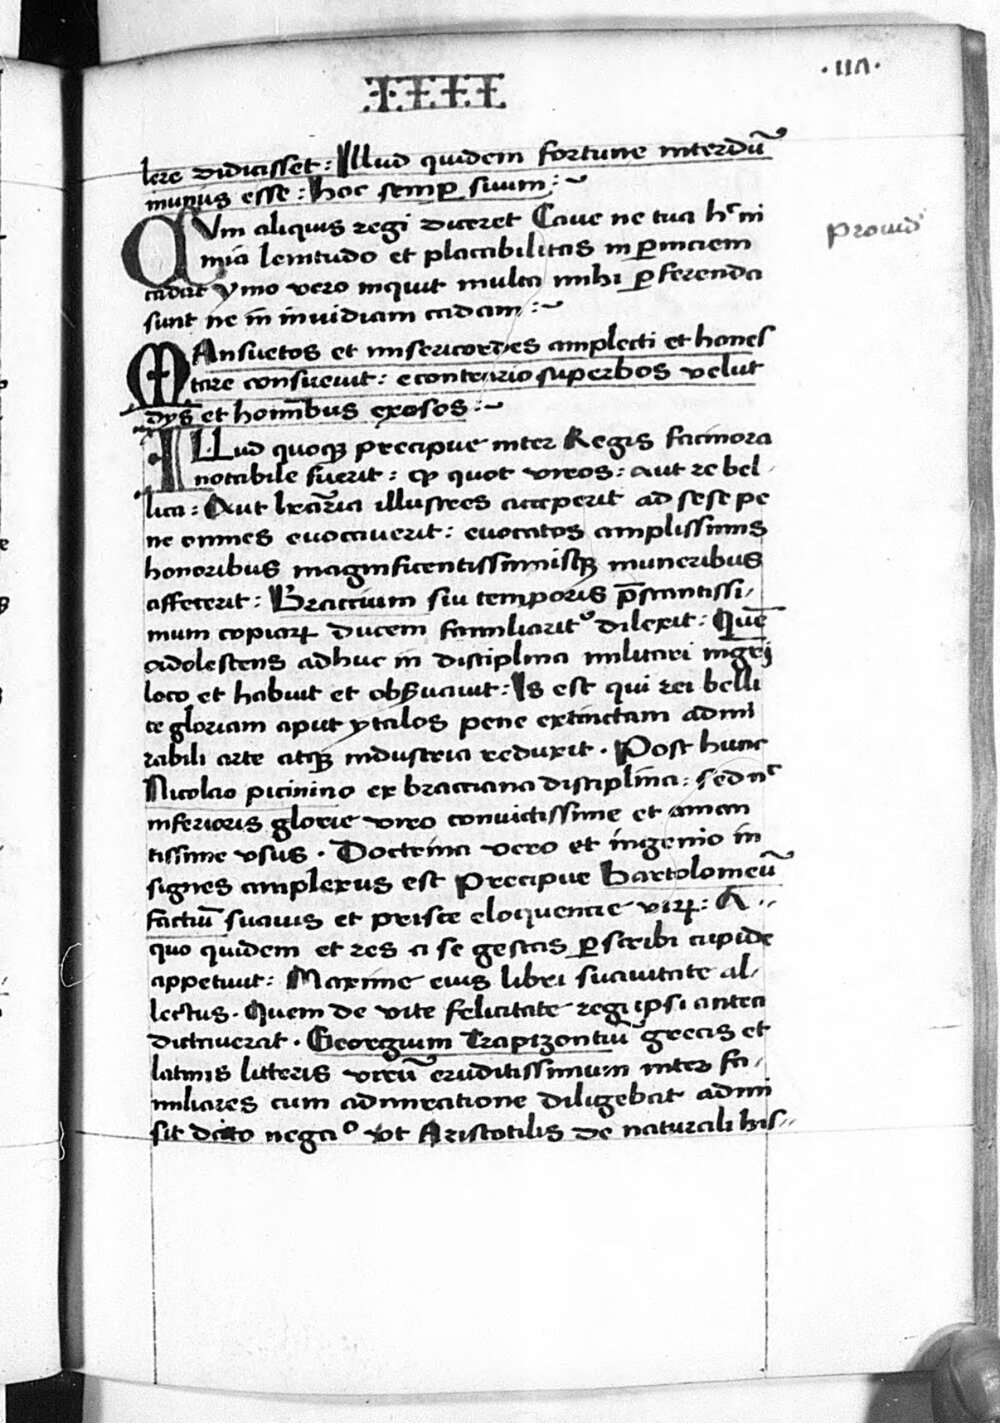 IIII
·117·
lere didicisset: Illud quidem fortune interdū
munus esse: hoc semꝑ suum:~
QVm aliquis regi diceret Caue ne tua hec ni
mia lenitudo et placabilitas in ꝑniciem
cadat ymo vero inquit multa mihi ꝑferenda
sunt ne in inuidiam cadam:~
prouid
MAnsuetos et misericordes amplecti et hones
tare consueuit: econtrario superbos velut
dijs et homībus exosos:~
ILLud quoqꝫ precipue inter Regis facinora
notabile fuerit: ꝙ quot viros: aut re bel
lica: Aut lr̄aria illustres acceperit ad sese pe
ne omnes euocauerit: euocatos amplissimis
honoribus magnificentissimisqꝫ muneribus
affecerit: Braccium sui temporis p̄stantissi
mum copiaꝝ ducem familiarit᷒ dilexit: Quē
adolescens adhuc in disciplina militari mgr̄i
loco et habuit et obseruauit: Is est qui rei belli
ce gloriam aput ytalos pene extinctam admi
rabili arte atqꝫ industria reduxit. Post hunc
Nicolao picinino ex bracciana disciplina: sed nec
inferioris glorie viro coniunctissime et aman
tissime vsus. Doctrina vero et ingenio in
signes amplexus est Precipue Bartolomeū
factiū suauis et prisce eloquencie viꝝ: A
quo quidem et res a se gestas ꝑscribi cupide
appetiuit: Maxime eius libri suauitate al
lectus. Quem de vite felicitate regi ipsi antea
dictauerat. Georgium Trapezontiū grecis et
latinis litteris virū eruditissimum inter fa
miliares cum admiratione diligebat admi
sit vt Aristotilis de naturali his